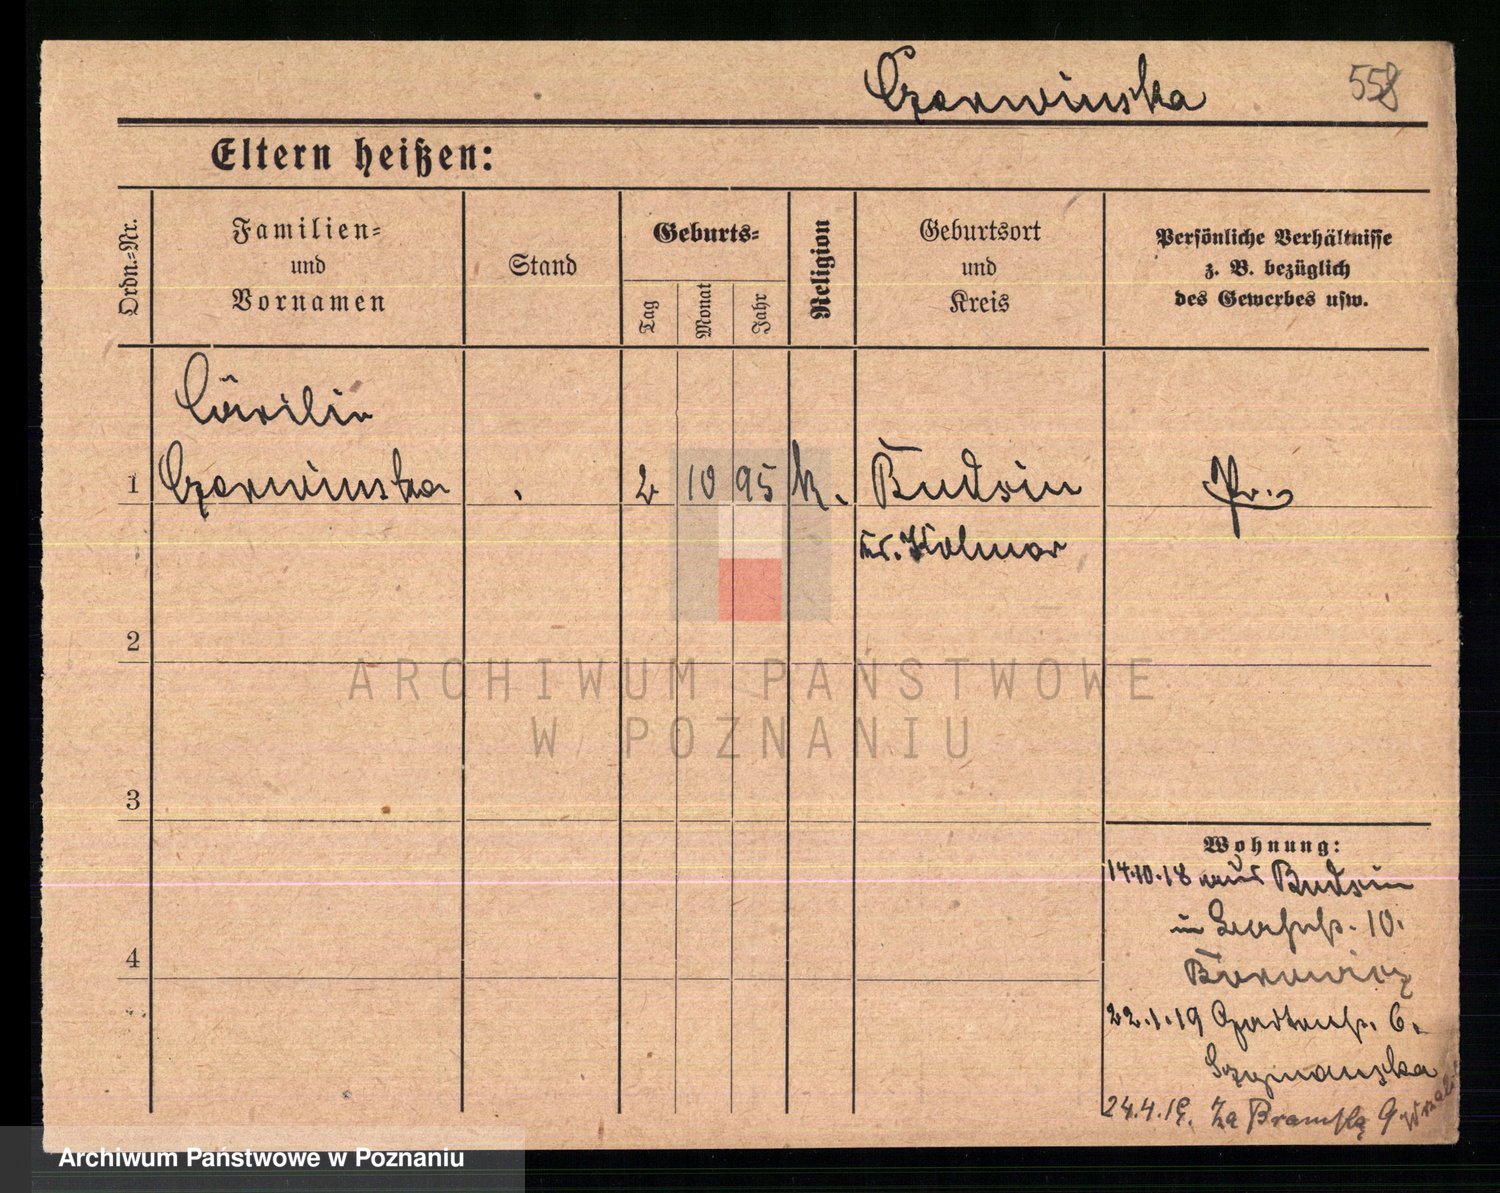 Czerwinska 558
Eltern heißen:
Ordn.-Nr.
Familien=
und
Vornamen
Stand
Geburts=
Tag
Monat
Jahr
Religion
Geburtsort
und
Kreis
Persönliche Verhältnisse
z. B. bezüglich
des Gewerbes usw.
Cäcilie
1 Czerwinska 2 10 95 k. Budsin Pr.
Kr. Kolmar
2
ARCHIWUM PAŃSTWOWE
W POZNANIU
3
Wohnung:
14.10.18 aus Budsin
in 10.
4
22.1.19 Gartenstr. 6.
Szymanska
24.4.19. Za Bramką 9
Archiwum Państwowe w Poznaniu